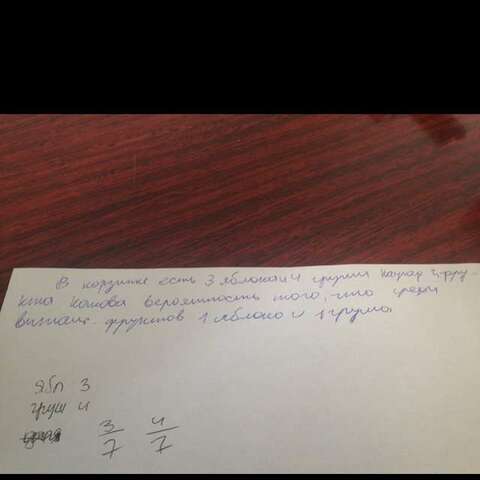 В корзинке есть 3 яблока и 4 груши наугад 2 фру-
кта какова вероятность того, что среди
вытащ. фруктов 1 яблоко и 1 груша
Ябл 3
груш 4
3 4
7 7